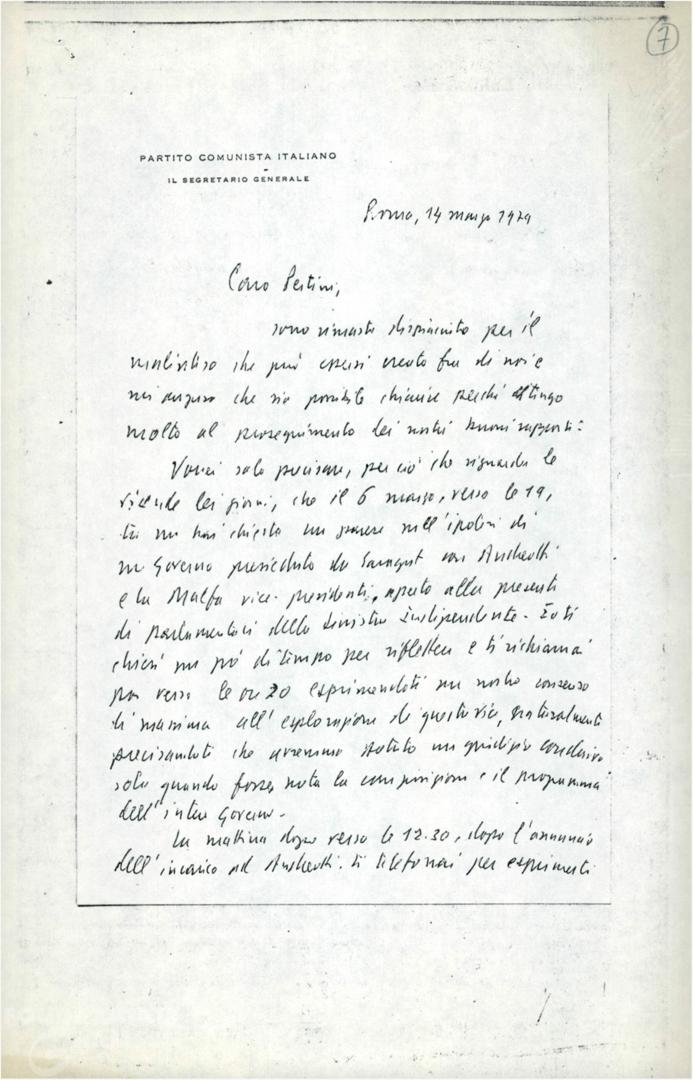 7
PARTITO COMUNISTA ITALIANO
IL SEGRETARIO GENERALE
Roma, 14 marzo 1979
Caro Pertini,
sono rimasto dispiaciuto per il
malinteso che può essersi creato fra di noi e
mi auguro che sia possibile chiarire perché tengo
molto al proseguimento dei nostri buoni rapporti.
Vorrei solo precisare, per ciò che riguarda le
vicende dei giorni, che il 6 marzo, verso le 19,
tu mi hai chiesto un parere sull'ipotesi di
un Governo presieduto da Saragat con Andreotti
e La Malfa vice-presidenti, aperto alla presenza
di parlamentari della Sinistra Indipendente. Io ti
chiesi un pò di tempo per riflettere e ti richiamai
poi verso le ore 20 esprimendoti un nostro consenso
di massima all'esplorazione di questa via, naturalmente
precisandoti che avremmo dato un giudizio conclusivo
solo quando fosse nota la composizione e il programma
dell'intero Governo.
La mattina dopo verso le 12.30, dopo l'annuncio
dell'incarico ad Andreotti. ti telefonai per esprimerti